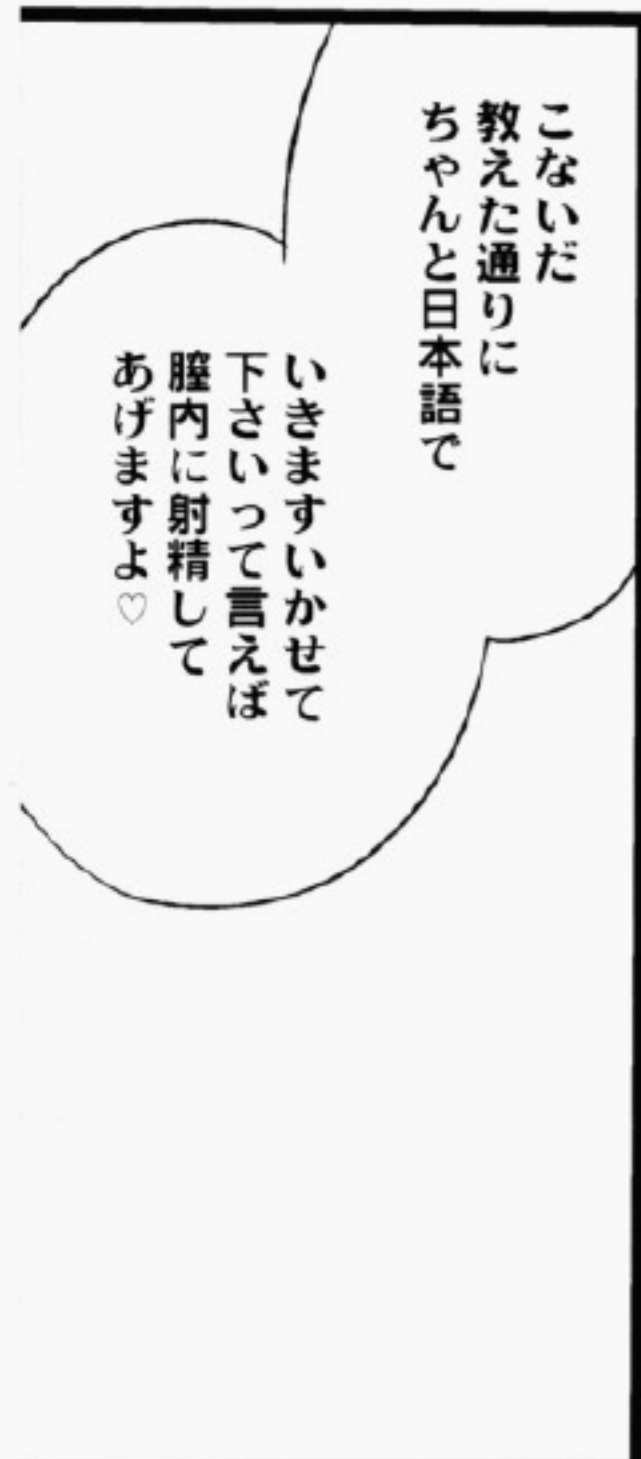 こないだ
教えた通りに
ちゃんと日本語で
いきますいかせて
下さいって言えば
膣内に射精して
あげますよ♡